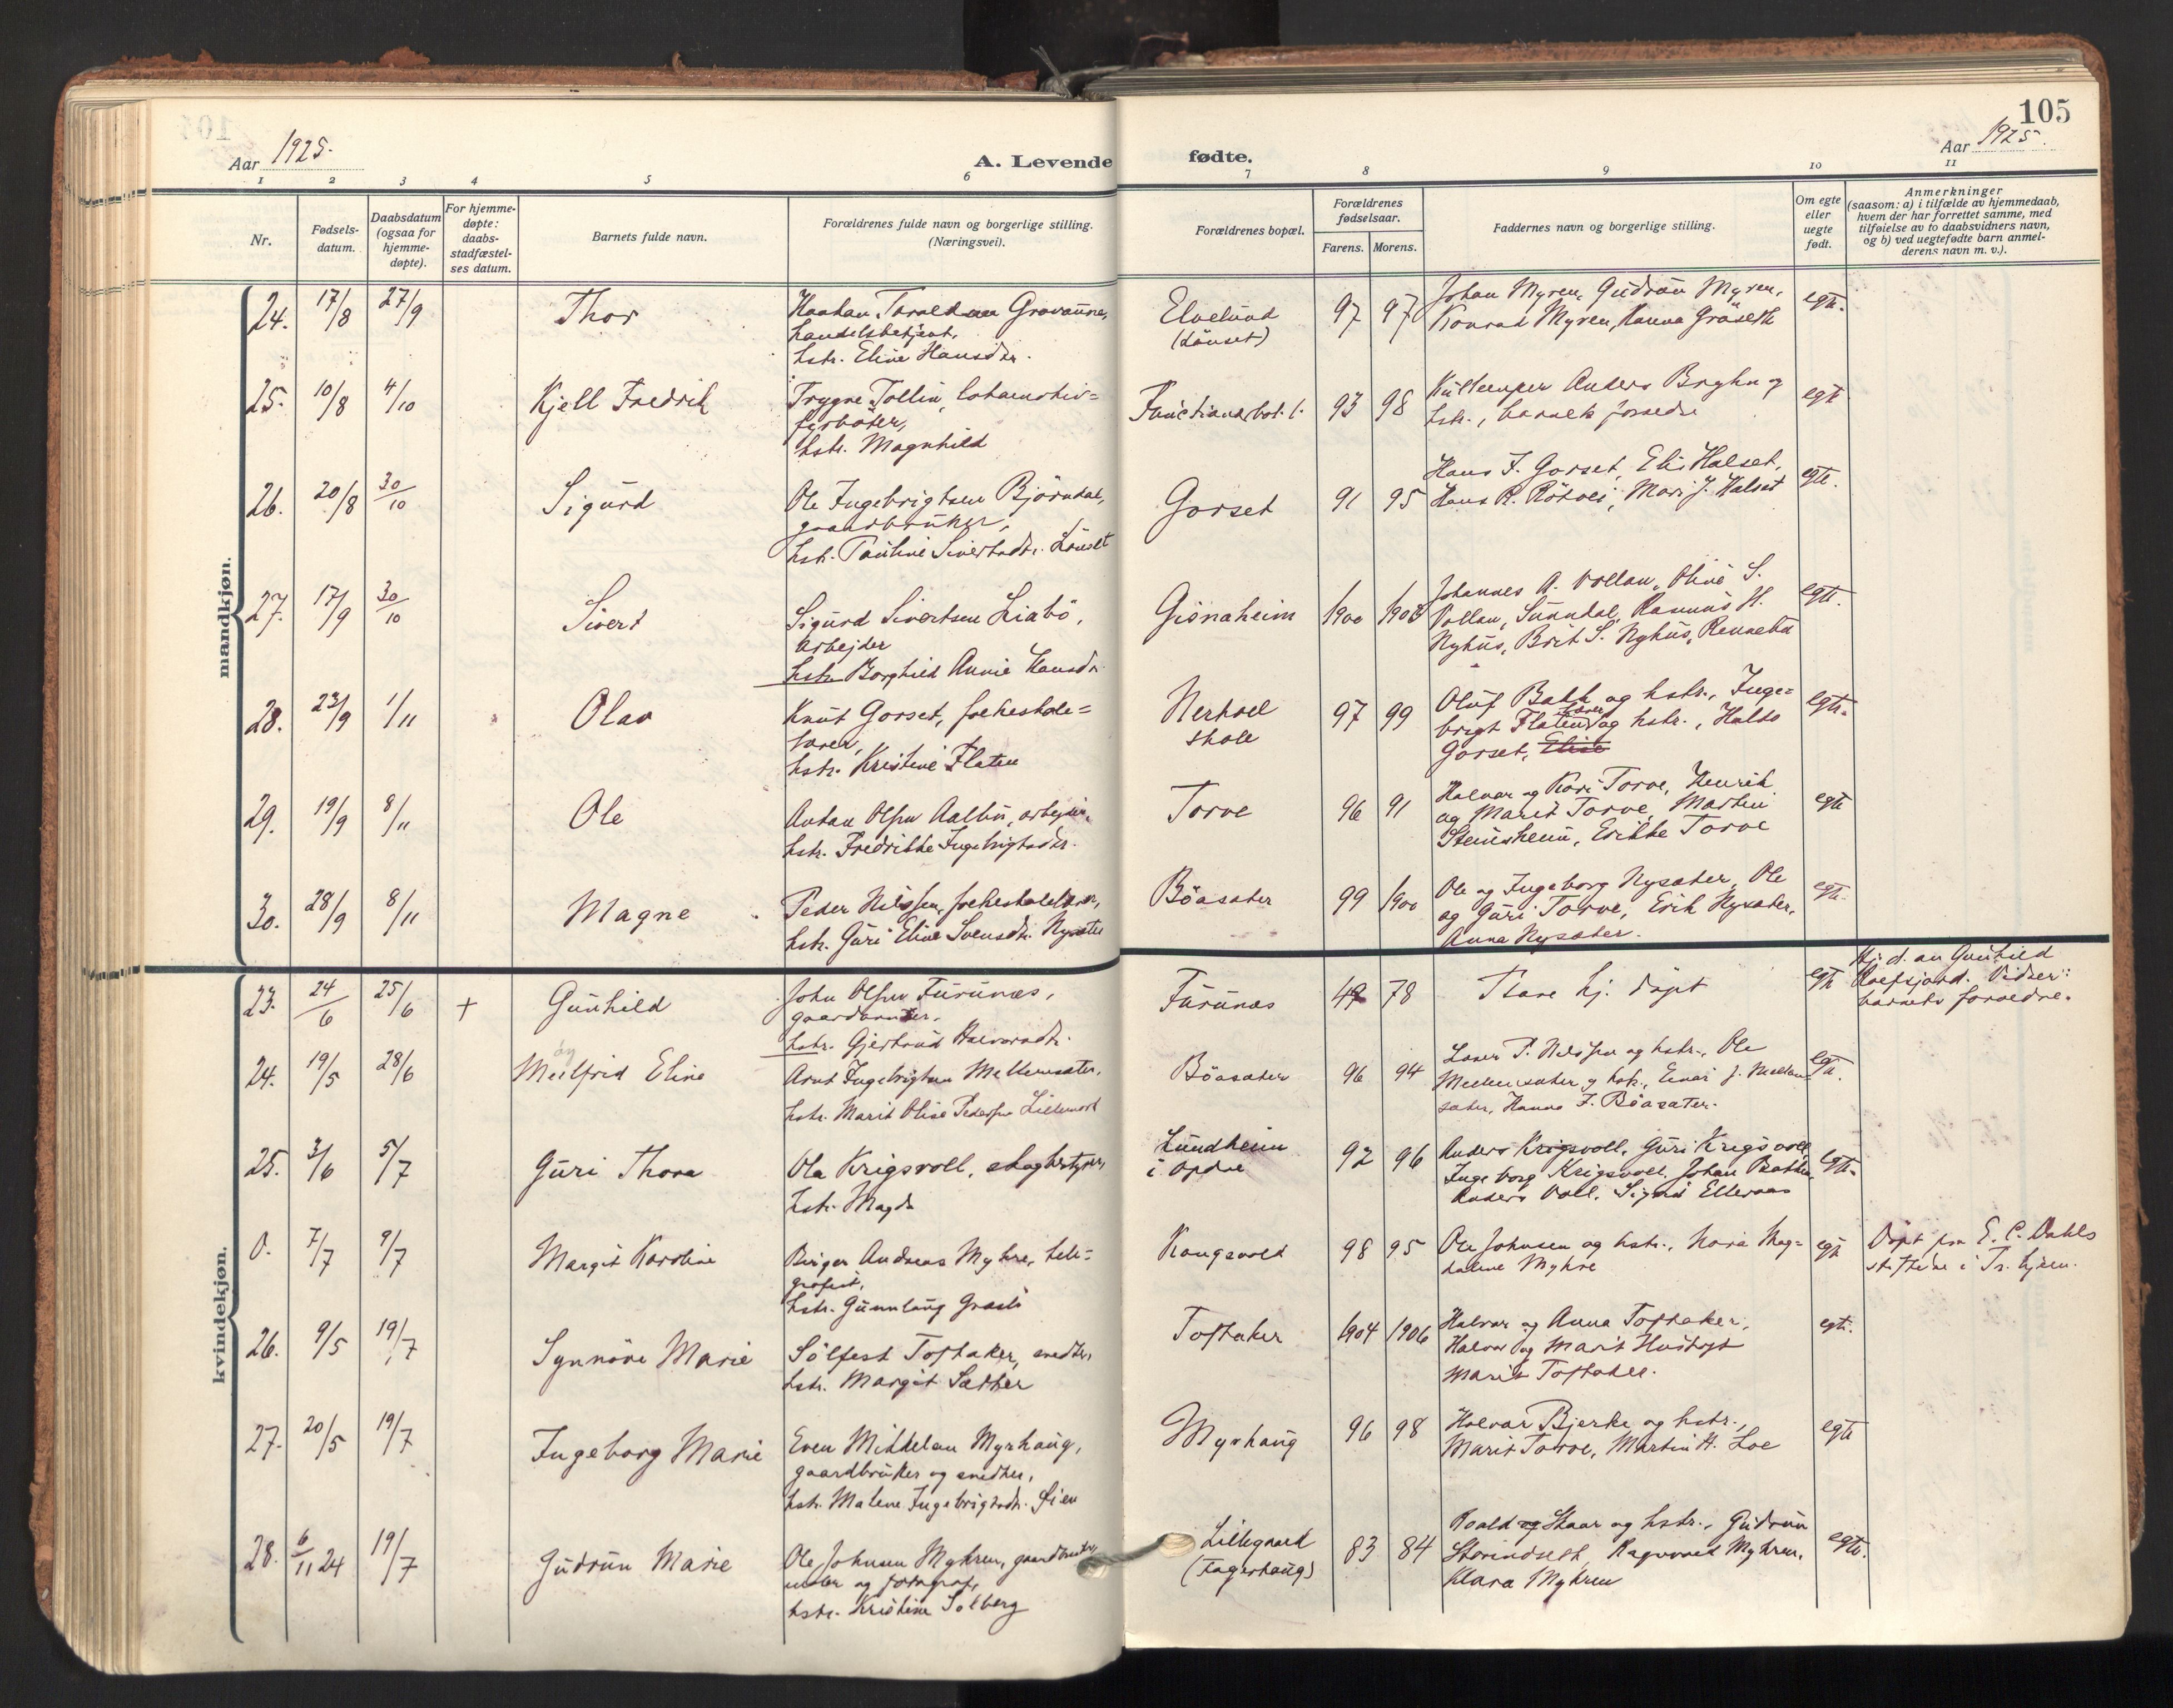 105
Aar 1925.
A. Levende fødte.
Aar 1925.
1 2 3 4 5 6 7 8 9 10 11
Nr.
Fødsels-
datum.
Daabsdatum
(ogsaa for
hjemme-
døpte).
For hjemme-
døpte:
daabs-
stadfæstel-
ses datum.
Barnets fulde navn.
Forældrenes fulde navn og borgerlige stilling.
(Næringsvei).
Forældrenes bopæl.
Forældrenes
fødselsaar.
Farens. Morens.
Faddernes navn og borgerlige stilling.
Om egte
eller
uegte
født.
Anmerkninger
(saasom: a) i tilfælde av hjemmedaab,
hvem der har forrettet samme, med
tilføielse av to daabsvidners navn,
og b) ved uegtefødte barn anmel-
derens navn m. v.).
mandkjøn.
24. 17/8 27/9 Thor
Haakon Gravaune,
handelsbetjent,
hstr. Eline Hansdtr.
Elvelund
(Lönset)
97 97
Johan Myren, Gudrun Myren,
Konrad Myren, Hanna Gräseth
egte.
25. 10/8 4/10 Kjell Fredrik
Trygve Tollin, lokomotiv=
fyrböter,
hstr. Magnhild
93 98
Anders Bryhn og
hstr., barnets foreldre
egte
26. 20/8 30/10 Sigurd
Ole Ingebrigtsen Björndal,
gaardbruker,
hstr. Pauline Sivertsdtr. Lönset
Gorset
91 95
Hans J. Gorset, Eli Halset,
Hans R. Rötvei, Mari J. Halset
egte.
27. 17/9 30/10 Sivert
Sigurd Sivertsen Liabö,
arbejder
hstr. Borghild Annie Hansdr.
Gisnaheim
1900 1903
Johannes A. Vollan, Oline S.
Vollan, Sunndal, Rasmus H.
Nyhus, Brit S. Nyhus, Rennebu
egte.
28. 23/9 1/11 Olav
Knut Gorset, folkeskole=
lærer,
hstr. Kristine Flaten
Nerskogen
skole
97 99
Oluf Bakk og hstr., Inge=
brigt Flaten, lærer, og hstr., Haldo
Gorset, Elise
egte.
29. 19/9 8/11 Ole
Anton Olsen Aalbu, arbejder,
hstr. Fredrikke Ingebrigtsdtr.
Torve
96 91
Halvar og Kari Torve, Henrik
og Marit Torve, Martin
Steinsheim, Erikke Torve
egte
30. 28/9 8/11 Magne
Peder Nilssen, folkeskolelærer,
hstr. Guri Eline Svensdtr. Nysæter
Böasæter
99 1900
Ole og Ingeborg Nysæter, Ole
og Guri Torve, Erik Nysæter,
Anna Nysæter.
egte.
kvindekjøn.
23. 24/6 25/6 + Gunhild
John Olsen Furunæs,
gaardbruker,
hstr. Gjertrud Halvorsdtr.
Furunæs
49 78
Bare hj. döpt
egte
Hj. d. av Gunhild
Vidner:
barnets foreldre.
24. 19/5 28/6 Meilfrid Eline
Arnt Ingebrigtsen Mellemsæter,
hstr. Marit Olise Pedersen
Böasæter
96 94
Lærer P. Nilssen og hstr., Ole
Mellemsæter og hstr., Einar J. Mellem=
sæter, Hanna J. Böasæter.
egte.
25. 3/6 5/7 Guri Thora
Ola Krigsvoll, skogbestyrer,
hstr. Magda
Lundheim
i Opdal
92 96
Anders Krigsvoll, Guri Krigsvoll,
Ingeborg Krigsvoll, Johan
Anders Voll, Sigrid Ellevaas
egte.
0. 7/7 9/7 Margit Karoline
Birger Andreas Myhre, tele=
grafist,
hstr. Gunnlaug Græsli
Kongsvold
98 95
Ole Johnsen og hstr., Nora Mag=
dalene Myhre
egte
Döpt paa E. C. Dahls
stiftelse i Tr.hjem.
26. 9/5 19/7 Synnöve Marie
Sölfest Toftaker, snedker,
hstr. Margit Sæther
Toftaker
1904 1906
Halvor og Anna Toftaker,
Halvor og Marit
Marit Toftaker.
egte.
27. 20/5 19/7 Ingeborg Marie
Even Mikkelsen Myrhaug,
gaardbruker og snedker,
hstr. Malene Ingebrigtsdtr. Öien
Myrhaug
96 98
Halvor Bjerke og hstr.,
Marit Torve, Martin H. Loe
egte
28. 6/11 24 19/7 Gudrun Marie
Ole Johnsen Myhren, gaardbruker,
maler og fotograf,
hstr. Kristine Solberg
(Fagerhaug)
83 84
Roald Skaar og hstr., Gudrun
Storindseth, Ragnvald Myhren,
Klara Myhren
egte.